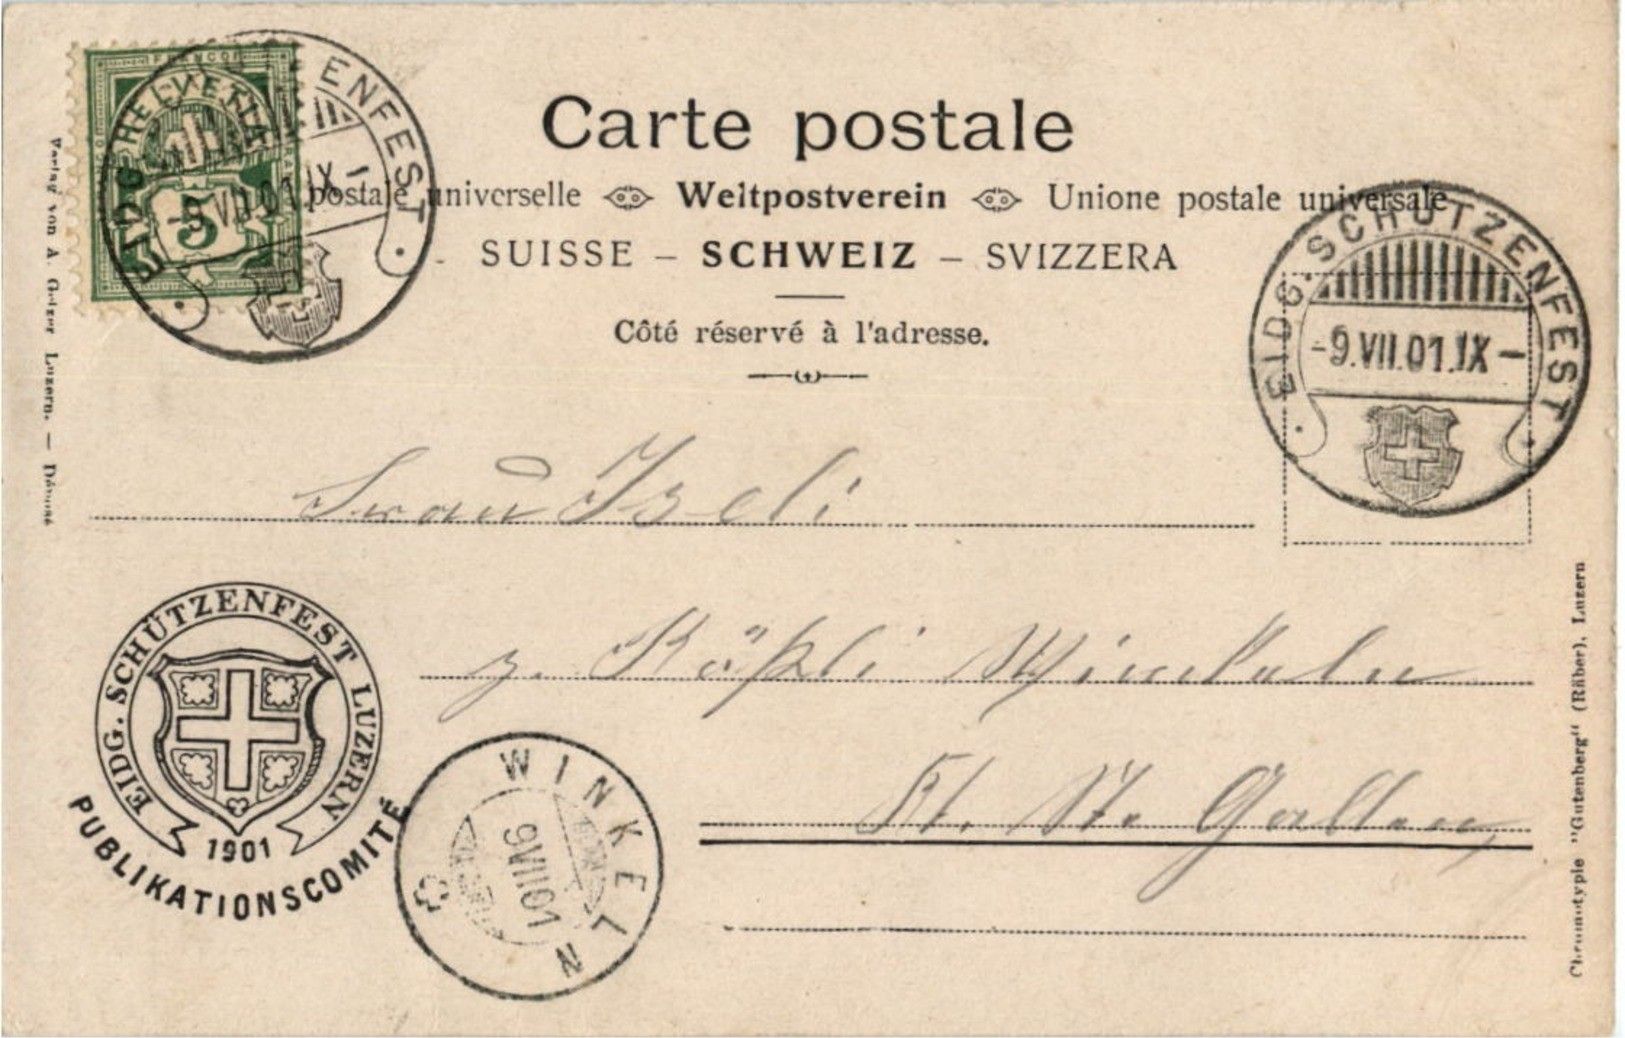 FRANCO
HELVETIA
5
EIDG. SCHÜTZENFEST
-9.VII.01.IX-
Carte postale
postale universelle Weltpostverein Unione postale universale
SUISSE – SCHWEIZ – SVIZZERA
Côté réservé à l'adresse.
EIDG. SCHÜTZENFEST
-9.VII.01.IX-
Verlag von A. Gelzer Luzern. — Déposé
Frau Iseli
z. Rößli Winkeln
Kt. St. Gallen
EIDG. SCHÜTZENFEST LUZERN
1901
PUBLIKATIONSCOMITÉ
WINKELN
9 VII 01
Chromotypie "Gutenberg" (Räber), Luzern